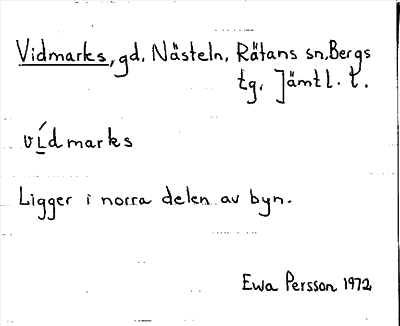 Vidmarks, gd, Nästeln, Rätans sn, Bergs
tg, Jämtl. l.
vídmarks
Ligger i norra delen av byn.
Ewa Persson 1972